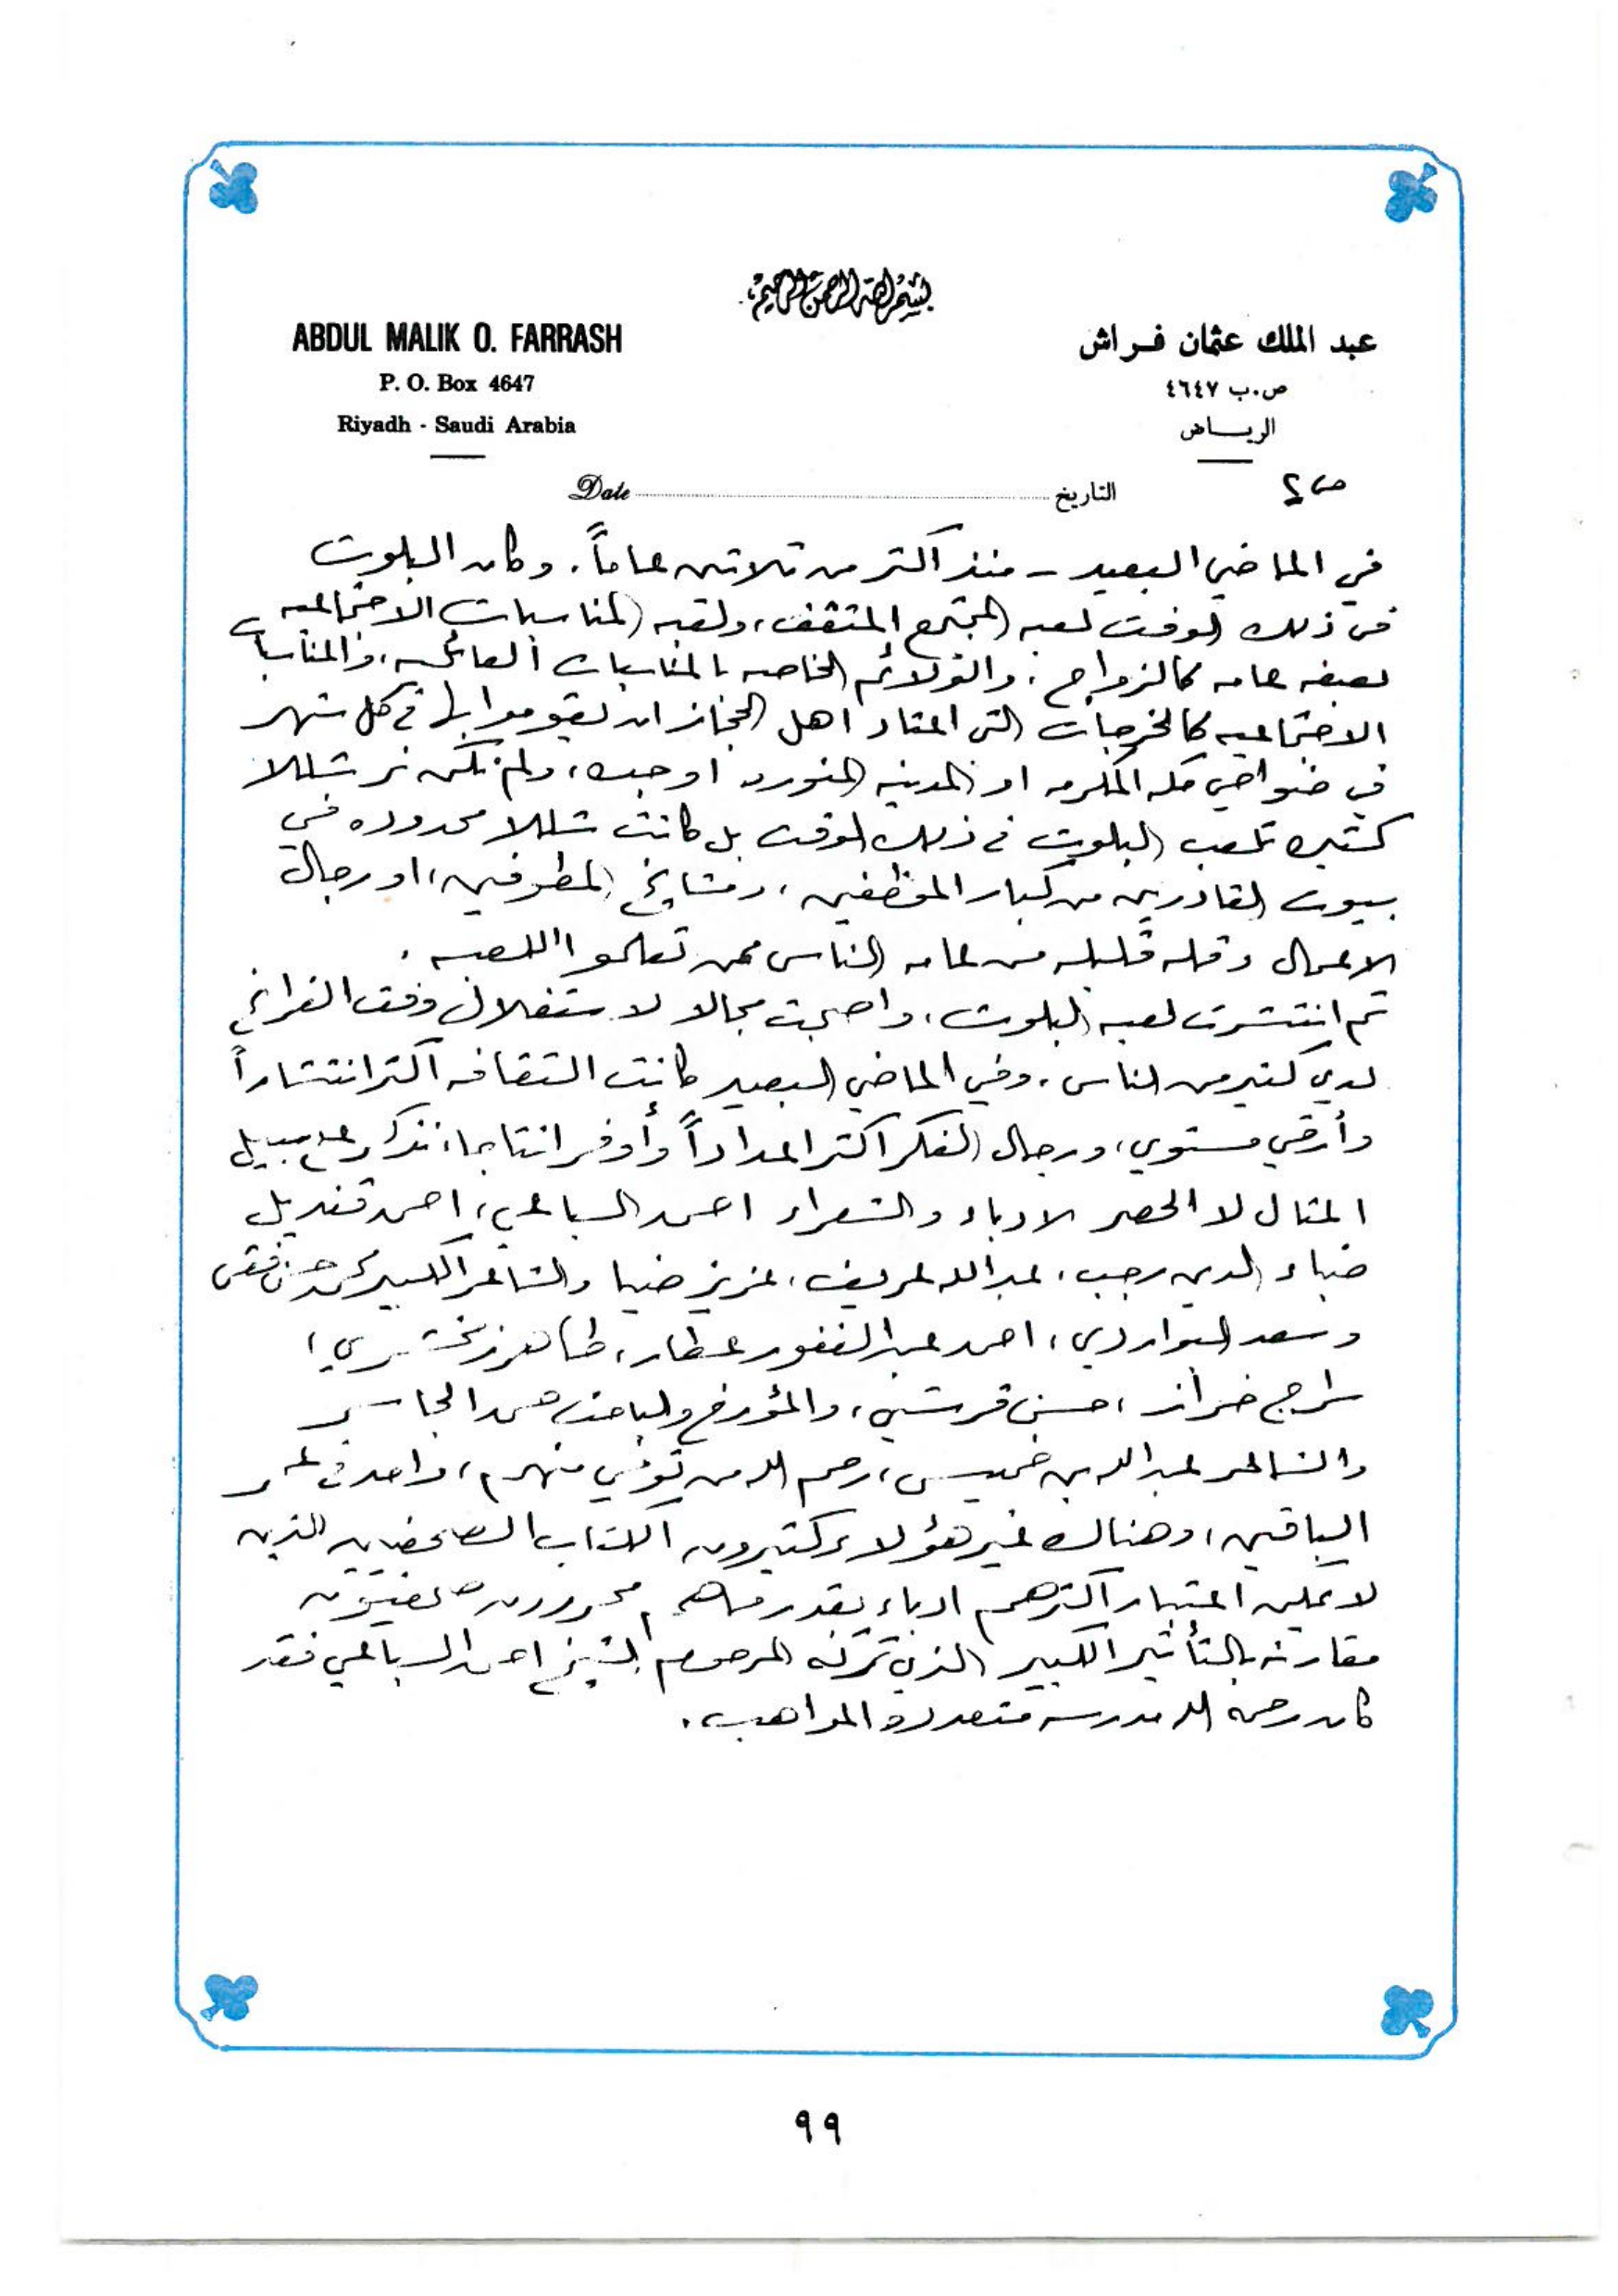 بسم الله الرحمن الرحيم
ABDUL MALIK O. FARRASH
عبد الملك عثمان فراش
P. O. Box 4647
ص.ب ٤٦٤٧
Riyadh - Saudi Arabia
الرياض
Date التاريخ
ص ٢
في الماضي البعيد - منذ اكثر من ثلاثين عاماً. وكان البلوت
في ذلك الوقت لعبه المجتمع المثقف، ولعبه المناسبات الاجتماعيه
بصفه عامه كالزواج، والولائم الخاصه بالمناسبات العائليه، والمناسبات
الاجتماعيه كالخرجات التى اعتاد اهل الحجاز ان يقوموا بها في كل شهر
في ضواحي مكه المكرمه او المدينه المنوره او جده، ولم نكن نر شللا
كثيره تلعب البلوت في ذلك الوقت بل كانت شللا محدوده في
بيوت القادرين من كبار الموظفين، ومشايخ المطوفين، او رجال
الاعمال وقله قليله من عامه الناس ممن تعلموا اللعبه.
ثم انتشرت لعبه البلوت، واصبحت مجالا لاستغلال وقت الفراغ
لدي كثير من الناس، وفي الماضي البعيد كانت الثقافه اكثر انتشاراً
وأرقي مستوي، ورجال الفكر اكثر اعداداً وأوفر انتاجا، نذكر على سبيل
المثال لا الحصر الادباء والشعراء احمد السباعي، احمد قنديل
ضياء الدين رجب، عبدالله عريف، عزيز ضيا والشاعر الكبير محمد حسن فقى
وسعد البواردي، احمد عبدالغفور عطار، طاهر زمخشري،
سراج خراز، حسن قرشي، والمؤرخ والباحث حمد الجاسر
والشاعر عبدالله بن خميس، رحم الله من توفي منهم، وامد في عمر
الباقين، وهناك غير هؤلاء كثيرون الكتاب الصحفيين الذين
لا يمكن اعتبار اكثرهم ادباء بقدر ما هم محررون صحفيون
مقارنه بالتأثير الكبير الذي تركه المرحوم الشيخ احمد السباعي فقد
كان رحمه الله مدرسه متعدده المواهب.
٩٩